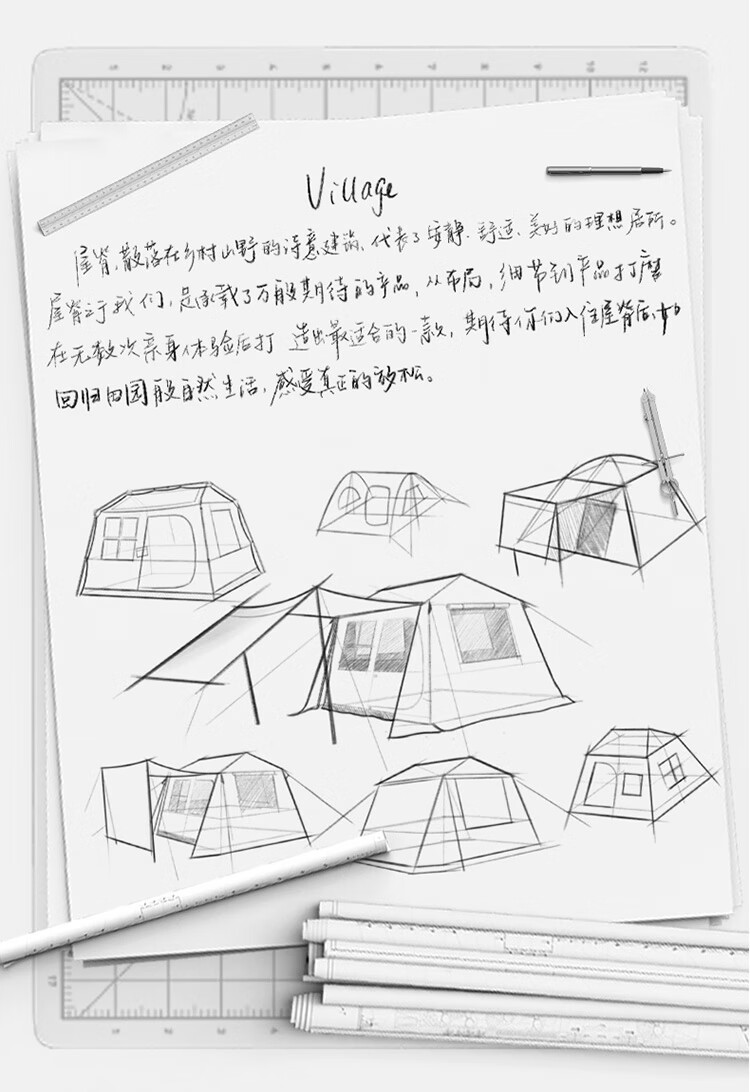 Village
屋脊,散落在乡村山野的诗意建筑,代表了安静、舒适、美好的理想居所。
屋脊之于我们,是承载了万般期待的产品,从布局,细节到产品打磨
在无数次亲身体验后打 造出最适合的一款,期待你们入住屋脊后,如
回归田园般自然生活,感受真正的放松。